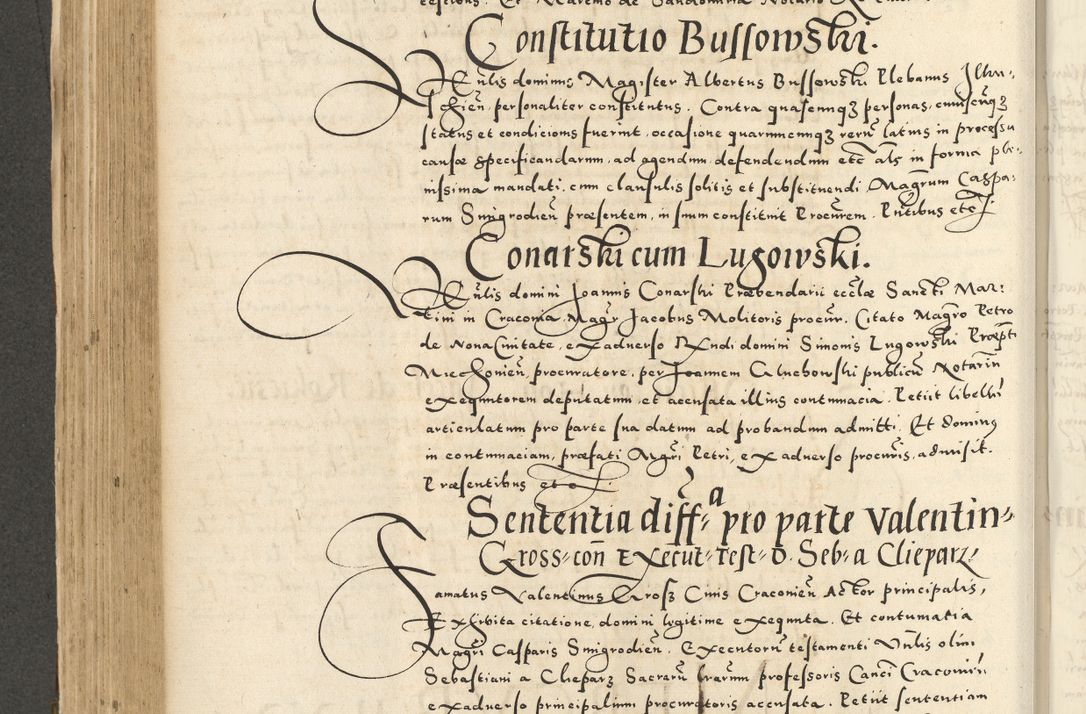 Constitutio Bussowski.
Rndlis dominus Magister Albertus Bussowski Plebanus Ilku-
schien, personaliter constitutus. Contra quascunqꝫ personas, cuiuscunqꝫ
status et conditionis fuerint, occasione quarumcunqꝫ rerum latius in processu
causæ specificandarum, ad agendum, defendendum etc als in forma ple-
nissima mandati, cum clausulis solitis et substituendi Magrum Caspa-
rum Smigrodien præsentem, in suum constituit Procurem. Pntibus etc
Conarski cum Lugowski.
domini Joannis Conarski Præbendarii ecclæ Sancti Mar-
tini in Cracovia, Magr Jacobus Molitoris procur. Citato Magro Petro
de Nova Civitate, ex adverso Rndi domini Simonis Lugowski Præpti
Miechovien, procuratore, per Joannem publicu Notariu
executorem deputatum, et accusata illius contumacia. Petiit libellu
articulatum pro parte sua datum ad probandum admitti. Et dominus
in contumaciam, præfati Magri Petri, ex adverso procuris, admisit.
Præsentibus etc.
Sententia diff:a pro parte Valentin
Gross con Execut: Test: D. Seb: a Cleparz
Famatus Valentinus Grosz Civis Cracovien Actor principalis,
Exhibita citatione, domini legitime exequuta. Et contumatia
Magri Casparis Smigrodien, Executoru testamenti Vnlis olim
Sebastiani a Cleparz Sacraru lrarum professoris Canci Cracovien
ex adverso principalium procuratoris accusata. Petiit sententiam